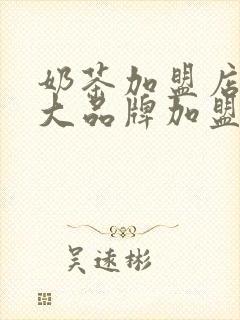 奶茶加盟店
大品牌加盟
吴远彬